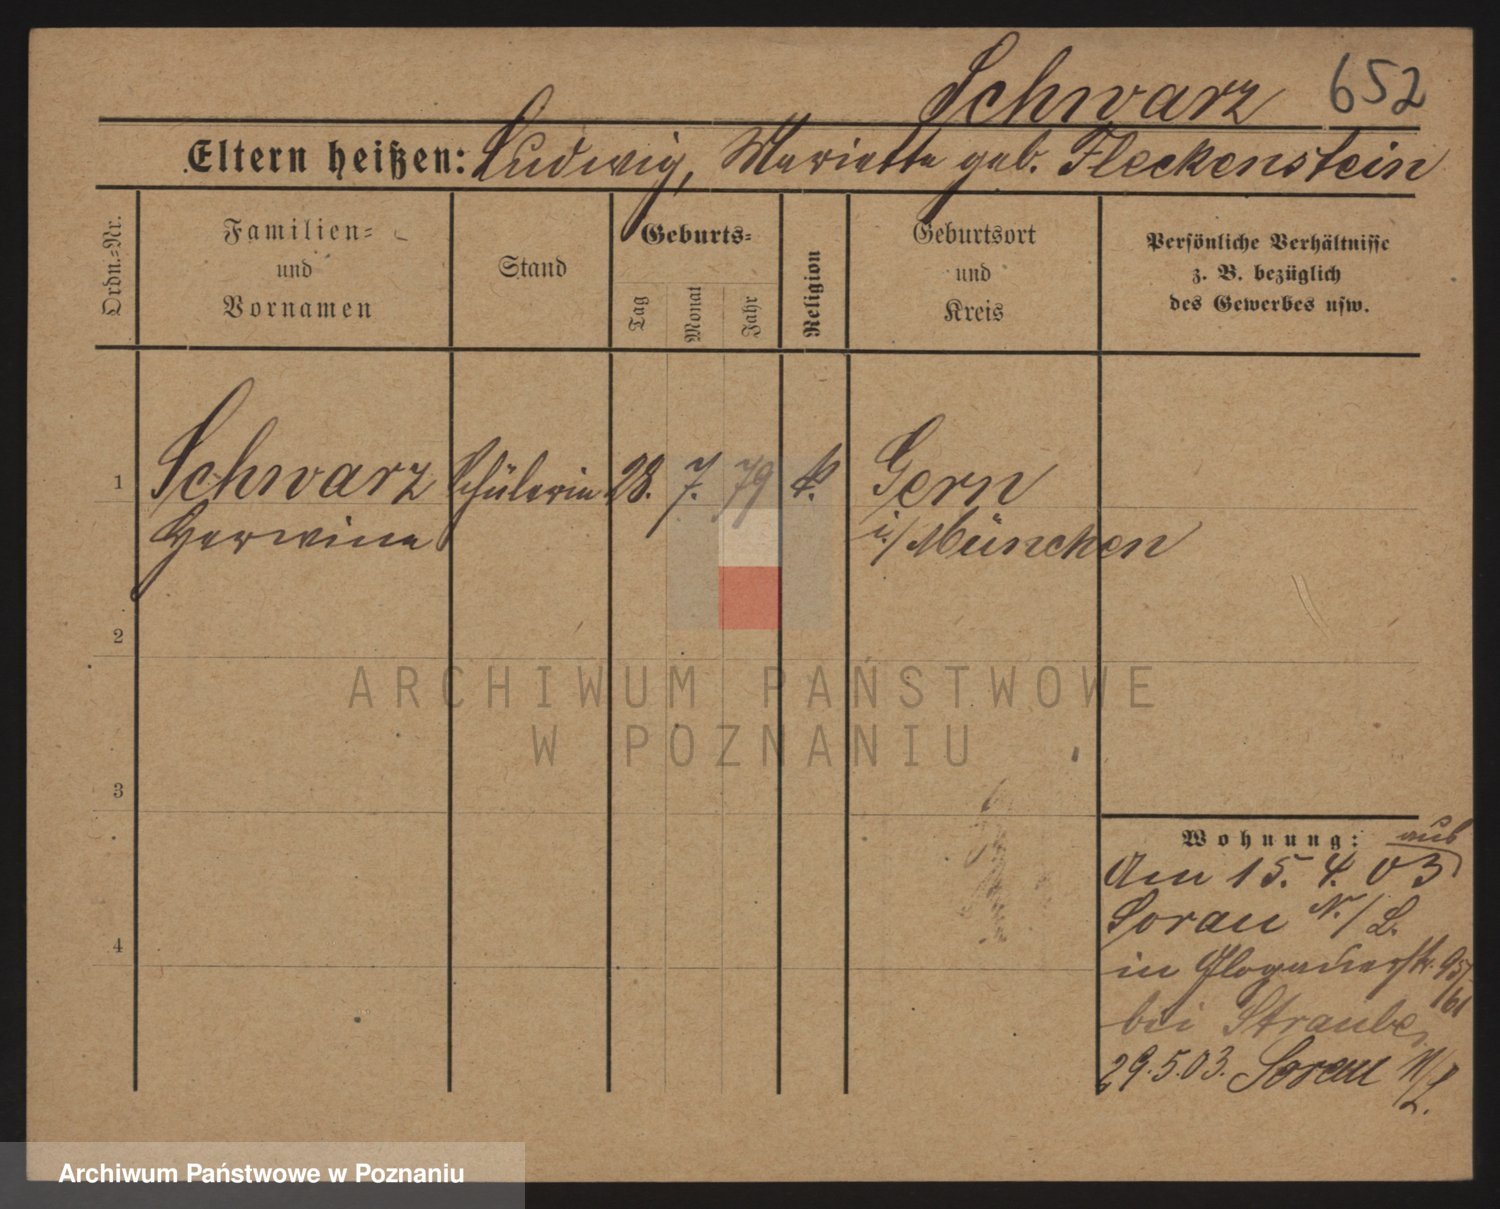 Schwarz 652
Eltern heißen: Ludwig, Marietta geb. Fleckenstein
Ordn.-Nr.
Familien-
und
Vornamen
Stand
Geburts-
Tag
Monat
Jahr
Religion
Geburtsort
und
Kreis
Persönliche Verhältnisse
z. B. bezüglich
des Gewerbes usw.
1 Schwarz Schülerin 28. 7. 79 k. Gern
Herwina i/München
2
3
4
ARCHIWUM PAŃSTWOWE
W POZNANIU
Wohnung: aus
Am 15. 4. 03
Sorau N./L.
in Glogauerstr. 95/
bei Straube
29.5.03. Sorau N/L.
Archiwum Państwowe w Poznaniu